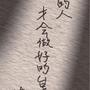 的人
才会做好的生